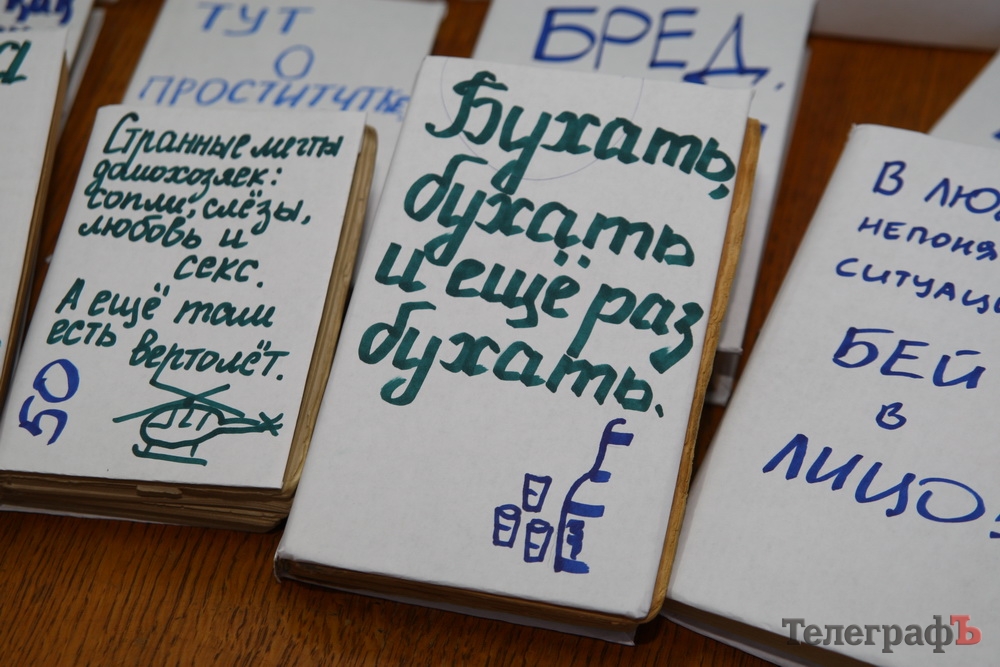 ТУТ
О
ПРОСТИТУТКЕ
БРЕД.
Странные мечты
домохозяек:
сопли, слёзы,
любовь и
секс.
А ещё там
есть вертолёт.
50
Бухать,
бухать
и ещё раз
бухать.
В
БЕЙ
В
ЛИЦО!
ТелеграфЪ